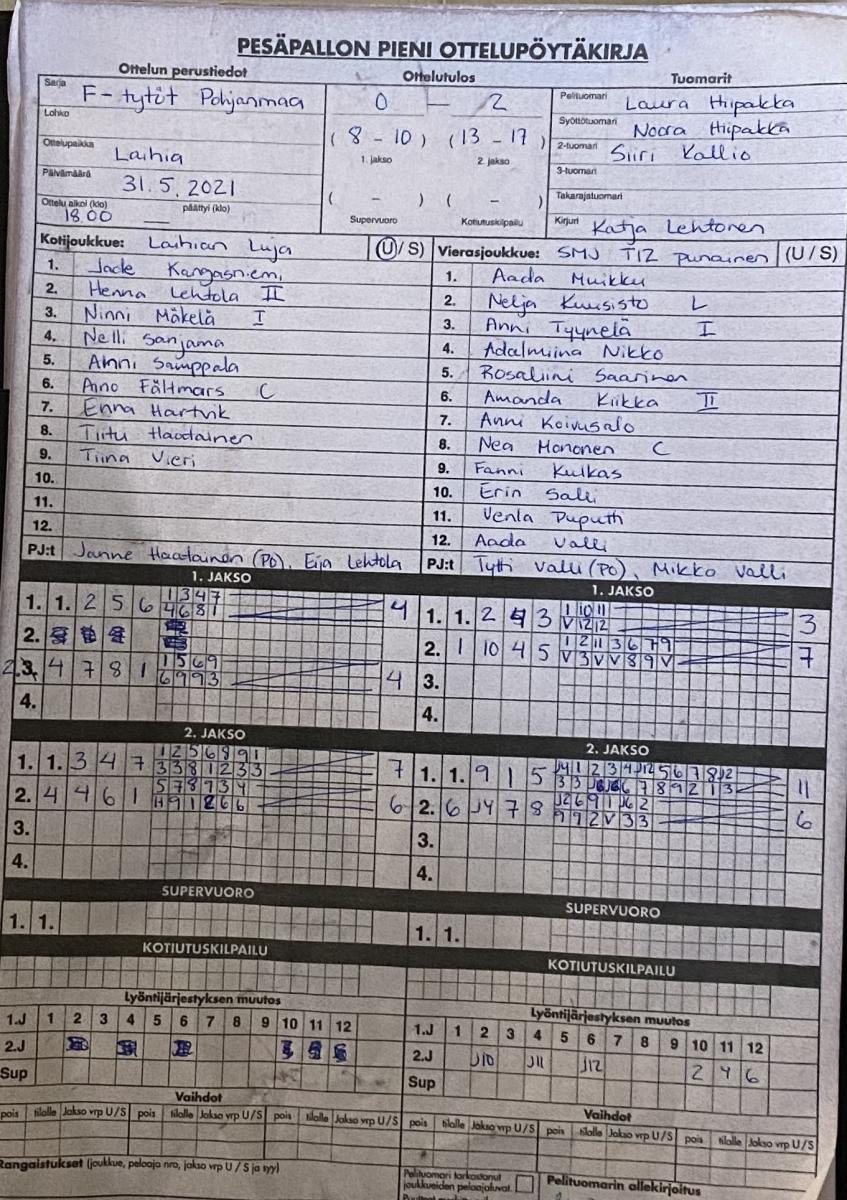 PESÄPALLON PIENI OTTELUPÖYTÄKIRJA
Ottelun perustiedot
Ottelutulos
Tuomarit
Sarja F-tytöt Pohjanmaa
Lohko
Ottelupaikka Laihia
Päivämäärä 31.5.2021
Ottelu alkoi (klo) 18.00 päättyi (klo)
0 — 2
(8 - 10) (13 - 17)
1. jakso 2. jakso
( - ) ( - )
Supervuoro Kotiutuskilpailu
Pelituomari Laura Hiipakka
Syöttötuomari Noora Hiipakka
2-tuomari Siiri Kallio
3-tuomari
Takarajatuomari
Kirjuri Katja Lehtonen
Kotijoukkue: Laihian Luja (U/S)
1. Jade Kangasniemi
2. Henna Lehtola II
3. Ninni Mäkelä I
4. Nelli Sanjama
5. Anni Samppala
6. Aino Fältmars C
7. Enna Hartvik
8. Tiitu Haadainen
9. Tiina Vieri
10.
11.
12.
PJ:t Janne Haadainen (PO), Eija Lehtola
Vierasjoukkue: SMJ T12 punainen (U/S)
1. Aada Muikku
2. Nelja Kuusisto L
3. Anni Tyynelä I
4. Adalmiina Nikko
5. Rosaliini Saarinen
6. Amanda Kiikka II
7. Anni Koivusalo
8. Nea Mononen C
9. Fanni Kulkas
10. Erin Salli
11. Venla Puputti
12. Aada Valli
PJ:t Tytti Valli (PO), Mikko Valli
1. JAKSO
1. 1. 2 5 6 1 3 4 7 4
4 6 8 1
2.
2. 3. 4 7 8 1 1 5 6 9 4
6 9 9 3
4.
1. JAKSO
1. 1. 2 4 3 1 10 11 3
V 12 12
2. 1 10 4 5 1 2 11 3 6 7 9 7
V 3 V V 8 9 V
3.
4.
2. JAKSO
1. 1. 3 4 7 1 2 5 6 8 9 1 7
3 3 8 1 2 3 3
2. 4 4 6 1 5 7 8 9 3 4 6
9 1 2 6 6
3.
4.
2. JAKSO
1. 1. 9 1 5 J4 1 2 3 4 J12 5 6 7 8 J2 11
3 3 6 7 8 9 2 1 3
2. 6 J4 7 8 J2 6 9 1 J6 2 6
9 9 2 V 3 3
3.
4.
SUPERVUORO
1. 1.
SUPERVUORO
1. 1.
KOTIUTUSKILPAILU
KOTIUTUSKILPAILU
Lyöntijärjestyksen muutos
1.J 1 2 3 4 5 6 7 8 9 10 11 12
2.J
Sup
Lyöntijärjestyksen muutos
1.J 1 2 3 4 5 6 7 8 9 10 11 12
2.J J10 J11 J12 2 4 6
Sup
Vaihdot
pois tilalle Jakso vrp U/S pois tilalle Jakso vrp U/S pois tilalle Jakso vrp U/S
Vaihdot
pois tilalle Jakso vrp U/S pois tilalle Jakso vrp U/S pois tilalle Jakso vrp U/S
Rangaistukset (joukkue, pelaaja nro, jakso vrp U / S ja syy)
Pelituomari tarkastanut
joukkueiden pelaajaluvat.
Pelituomarin allekirjoitus